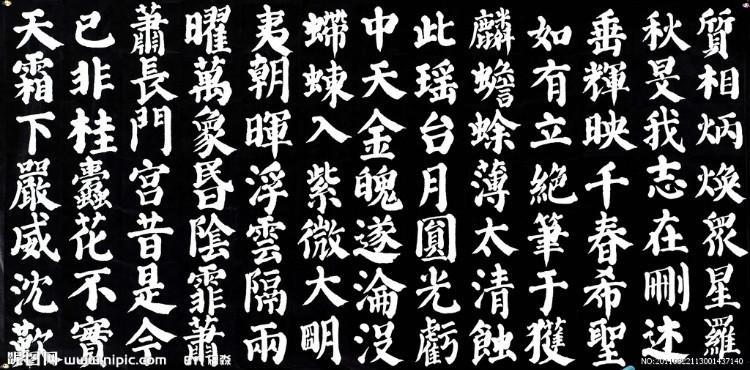 質相炳煥眾星羅
秋旻我志在刪述
垂輝映千春希聖
如有立絕筆于獲
麟蟾蜍薄太清蝕
此瑶台月圓光虧
中天金魄遂淪沒
螮蝀入紫微大明
夷朝暉浮雲隔兩
曜萬象昏陰霏蕭
蕭長門宮昔是今
已非桂蠹花不實
天霜下嚴威沈歎
昵图网 www.nipic.com